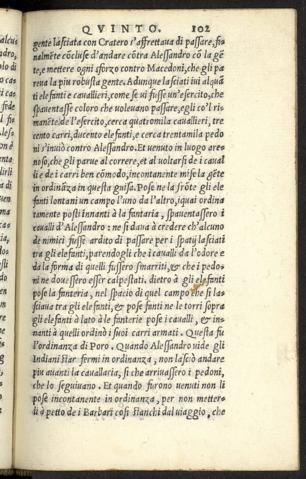 QVINTO. 102
gente lasciata con Cratero s'affrettaua di passare, fi
nalmēte cōcluse d'andare cōtra Alessandro cō la gē
te, e mettere ogni sforzo contro Macedoni, che gli pa
reua la piu robusta gente. Adunque lasciati iui alquā
ti elefanti e cauallieri, come se ui fusse un'esercito, che
spauentasse coloro che uoleuano passare, egli co'l ri
manēte de l'esercito, cerca quatromila cauallieri, tre
cento carri, ducento elefanti, e cerca trentamila pedo
ni s'inuiò contro Alessandro. Et uenuto in luogo are
noso, che gli parue al correre, et al uoltarsi de i caual
li e de i carri ben cōmodo, incontanente mise la gēte
in ordināza in questa guisa. Pose ne la frōte gli ele
fanti lontani un campo l'uno da l'altro, i quai ordina
tamente posti innanti à la fantaria, spauentassero i
caualli d'Alessandro: ne si daua à credere ch'alcuno
de nimici fusse ardito di passare per i spatij lasciati
tra gli elefanti, parendogli che i caualli da l'odore e
da la forma di quelli fussero smarriti, & che i pedo-
ni ne douessero esser calpestati. dietro à gli elefanti
pose la fanteria, nel spacio di quel campo che si las-
sciaua tra gli elefanti, & pose fanti ne le torri sopra
gli elefanti à lato à le fantarie pose i caualli, & in-
nanti à quelli ordinò i suoi carri armati. Questa fu
l'ordinanza di Poro. Quando Alessandro uide gli
Indiani star fermi in ordinanza, non lasciò andare
piu auanti la cauallaria, si che arriuassero i pedoni,
che lo seguiuano. Et quando furono uenuti non li
pose incontanente in ordinanza, per non metter-
li à petto de i Barbari cosi stanchi dal uiaggio, che